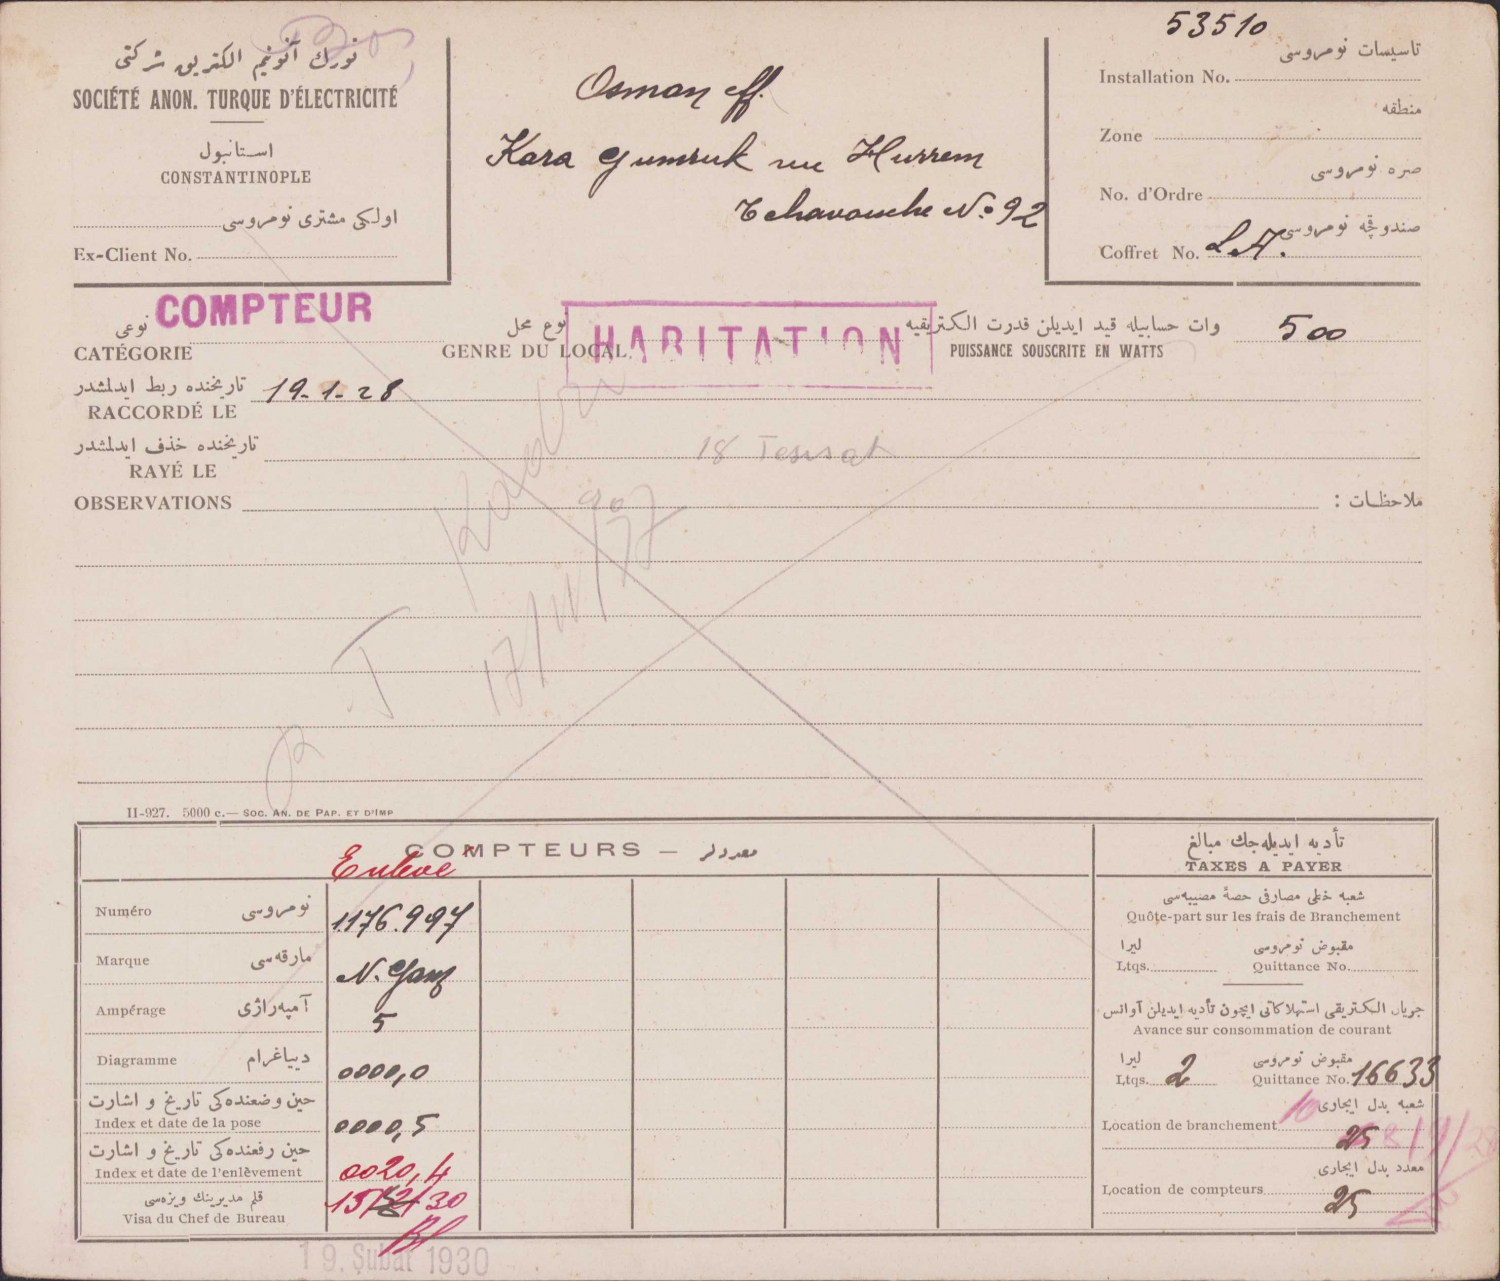 تورك آنونيم الكتريق شركتی
SOCIÉTÉ ANON. TURQUE D'ÉLECTRICITÉ
استانبول
CONSTANTINOPLE
اولكی مشتری نومروسی
Ex-Client No.
Osman eff.
Kara Gumruk rue Hurrem
Tchavouche No. 92
53510
تاسيسات نومروسی
Installation No.
منطقه
Zone
صره نومروسی
No. d'Ordre
صندوقچه نومروسی
Coffret No. L.A.
نوعی COMPTEUR
CATÉGORIE
نوع محل
GENRE DU LOCAL HABITATION
وات حسابيله قيد ايديلن قدرت الكتريقيه
PUISSANCE SOUSCRITE EN WATTS 500
تاريخنده ربط ايدلمشدر
RACCORDÉ LE 19.1.28
تاريخنده حذف ايدلمشدر
RAYÉ LE
18 Tesisat
OBSERVATIONS ملاحظات :
II-927. 5000 c.— SOC. AN. DE PAP. ET D'IMP
COMPTEURS — معددلر
Enlevé
Numéro نومروسی 1176.997
Marque مارقه سی N. Ganz
Ampérage آمپه راژی 5
Diagramme ديياغرام 0000,0
حين وضعنده كی تاريخ و اشارت
Index et date de la pose 0000,5
حين رفعنده كی تاريخ و اشارت
Index et date de l'enlèvement 0020,4
15/2/30
قلم مديرينك ويزه سی
Visa du Chef de Bureau
19. Şubat 1930
تأديه ايديله جك مبالغ
TAXES A PAYER
شعبه خطی مصارفی حصهٔ مصيبه سی
Quôte-part sur les frais de Branchement
ليرا مقبوض نومروسی
Ltqs. Quittance No.
جريان الكتريقی استهلاكاتی ايچون تأديه ايديلن آوانس
Avance sur consommation de courant
ليرا مقبوض نومروسی
Ltqs. 2 Quittance No. 16633
شعبه بدل ايجاری
Location de branchement 10
25
معدد بدل ايجاری
Location de compteurs
25